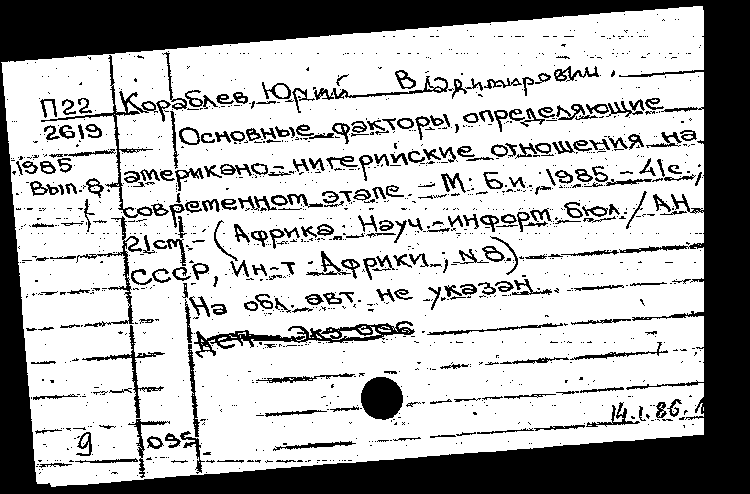 П22
2619
1985
Вып. 8
Кораблев, Юрий Владимирович.
Основные факторы, определяющие
американо-нигерийские отношения на
современном этапе. - М.: Б.и., 1985. - 41с.;
21см. - (Африка: Науч.-информ. бюл. / АН
СССР, Ин-т Африки; N 8)
На обл. авт. не указан.
ДЕП. Экз 006
14.1.86.
9
095